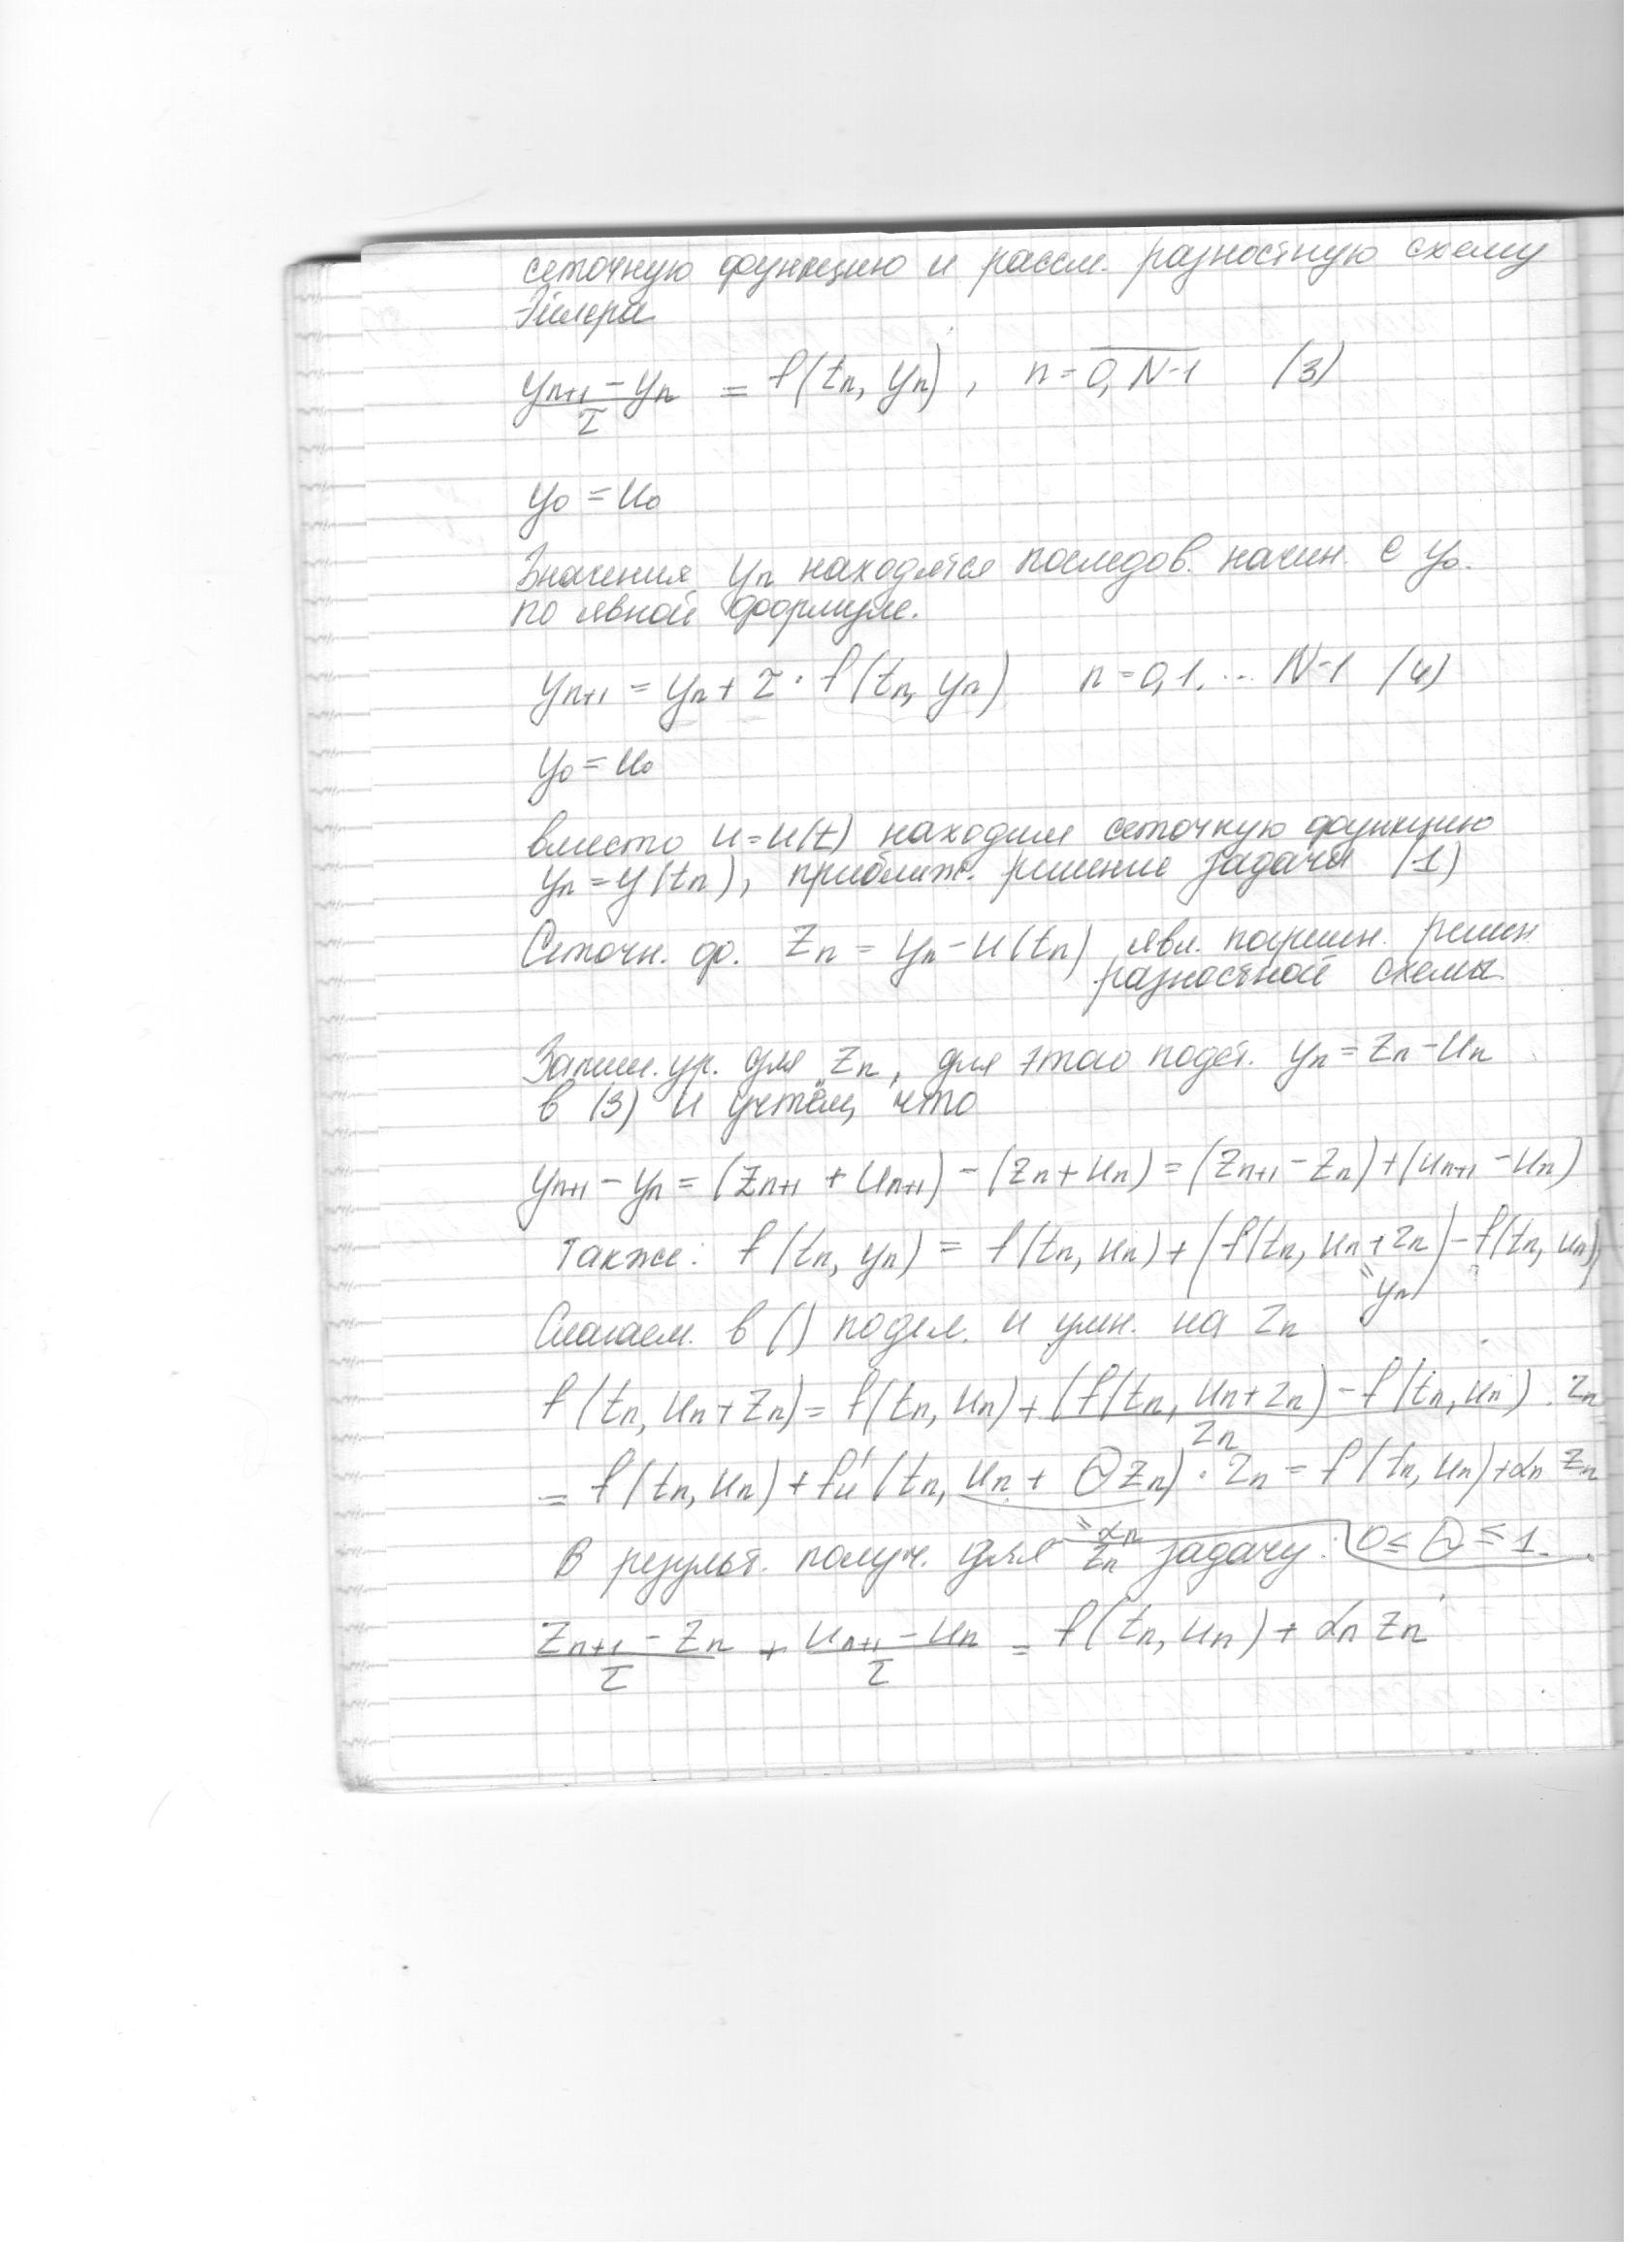 сеточную функцию и рассм. разностную схему
Эйлера
(y_{n+1} - y_n)/τ = f(t_n, y_n), n = \overline{0, N-1} (3)
y_0 = u_0
Значения y_n находятся последов. начин. с y_0.
по явной формуле.
y_{n+1} = y_n + τ · f(t_n, y_n) n = 0,1, ... N-1 (4)
y_0 = u_0
вместо u = u(t) находим сеточную функцию
y_n = y(t_n), приближ. решение задачи (1)
Сеточн. ф. z_n = y_n - u(t_n) явл. погрешн. решен.
разностной схемы.
Запиш. ур. для z_n, для этого подст. y_n = z_n - u_n
в (3) и учтём, что
y_{n+1} - y_n = (z_{n+1} + u_{n+1}) - (z_n + u_n) = (z_{n+1} - z_n) + (u_{n+1} - u_n)
Также: f(t_n, y_n) = f(t_n, u_n) + (f(t_n, u_n + z_n) - f(t_n, u_n))
= y_n
Слагаем. в () подел. и умн. на z_n
f(t_n, u_n + z_n) = f(t_n, u_n) + (f(t_n, u_n + z_n) - f(t_n, u_n))/z_n · z_n
= f(t_n, u_n) + f'_u(t_n, u_n + Θ z_n) · z_n = f(t_n, u_n) + α_n z_n
= α_n
В результ. получ. для z_n задачу: 0 ≤ Θ ≤ 1.
(z_{n+1} - z_n)/τ + (u_{n+1} - u_n)/τ = f(t_n, u_n) + α_n z_n